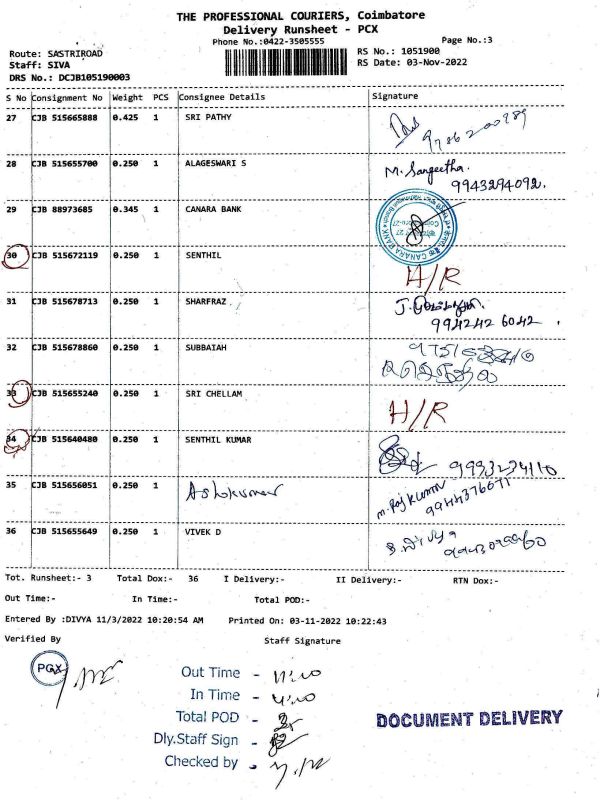 THE PROFESSIONAL COURIERS, Coimbatore
Delivery Runsheet - PCX
Phone No.:0422-3505555 Page No.:3
Route: SASTRIROAD RS No.: 1051900
Staff: SIVA RS Date: 03-Nov-2022
DRS No.: DCJB105190003
S No Consignment No Weight PCS Consignee Details Signature
27 CJB 515665888 0.425 1 SRI PATHY
28 CJB 515655700 0.250 1 ALAGESWARI S M. Sangeetha. 9943294092.
29 CJB 88973685 0.345 1 CANARA BANK
30 CJB 515672119 0.250 1 SENTHIL H/R
31 CJB 515678713 0.250 1 SHARFRAZ 994242 6042
32 CJB 515678860 0.250 1 SUBBAIAH
33 CJB 515655240 0.250 1 SRI CHELLAM H/R
34 CJB 515640480 0.250 1 SENTHIL KUMAR
35 CJB 515656051 0.250 1 Ashokumar M. Raj Kumar
36 CJB 515655649 0.250 1 VIVEK D
Tot. Runsheet:- 3 Total Dox:- 36 I Delivery:- II Delivery:- RTN Dox:-
Out Time:- In Time:- Total POD:-
Entered By :DIVYA 11/3/2022 10:20:54 AM Printed On: 03-11-2022 10:22:43
Verified By Staff Signature
PCX
Out Time - 11:00
In Time - 4:00
Total POD -
Dly.Staff Sign -
Checked by -
DOCUMENT DELIVERY